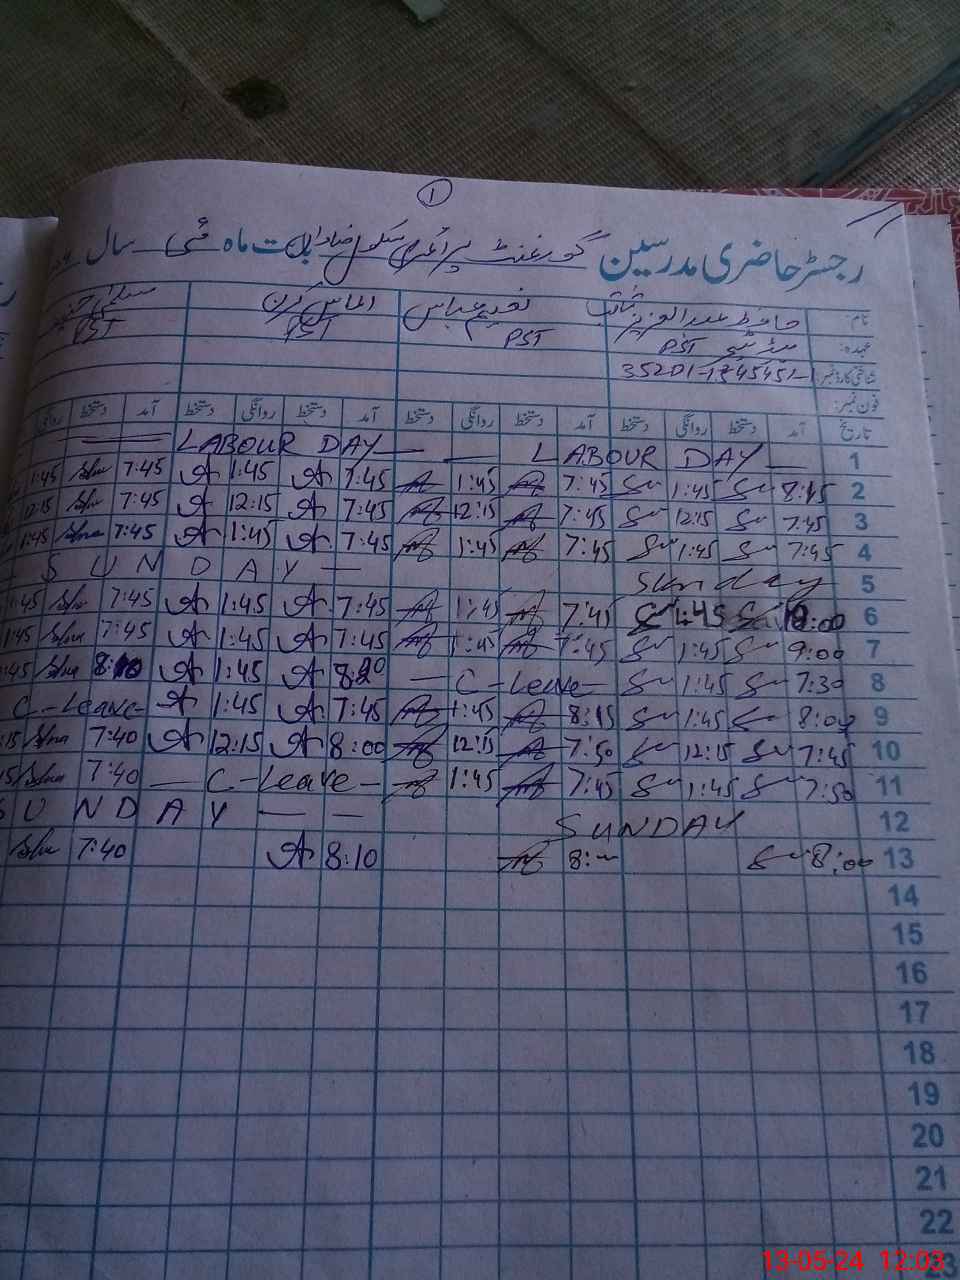 ①
رجسٹر حاضری مدرسین گورنمنٹ پرائمری سکول بابت ماہ مئی سال
نام: حافظ عبدالعزیز ثاقب ندیم عباس الماس کرن
عہدہ: PST PST PST PST
شناختی کارڈ نمبر: 35201-1
فون نمبر:
تاریخ آمد دستخط روانگی دستخط آمد دستخط روانگی دستخط آمد دستخط روانگی دستخط آمد دستخط روانگی
LABOUR DAY — — LABOUR DAY — 1
1:45 7:45 1:45 7:45 1:45 7:45 1:45 8:15 2
12:15 7:45 12:15 7:45 12:15 7:45 12:15 7:45 3
1:45 7:45 1:45 7:45 1:45 7:45 1:45 7:45 4
SUNDAY — Sunday 5
1:45 7:45 1:45 7:45 1:45 7:45 1:45 :00 6
1:45 7:45 1:45 7:45 1:45 7:45 1:45 9:00 7
:45 8:10 1:45 8:20 — C-Leave- 1:45 7:30 8
C-Leave- 1:45 7:45 1:45 8:15 1:45 8:00 9
:15 7:40 12:15 8:00 12:15 7:50 12:15 7:45 10
7:40 — C-Leave- 1:45 7:45 1:45 7:50 11
SUNDAY — — SUNDAY 12
7:40 8:10 8:— 8:00 13
14
15
16
17
18
19
20
21
22
23
13-05-24 12:03